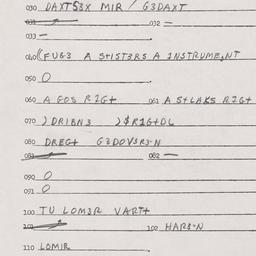 030 DAXTS3X MIR / G3DAXT
031 032 —
033 —
040 FUG3 A STIST3RS A INSTRUMENT
050 0
060 A GOS RIG+ 061 A S+LAKS RIG+
070 ) DRIBN3 ) $RIG+DL
080 DREG+ G3DOVSR3-N
082 —
090 0
091 0
100 TU LOM3R VART+
102 HARS-N
110 LOMIR